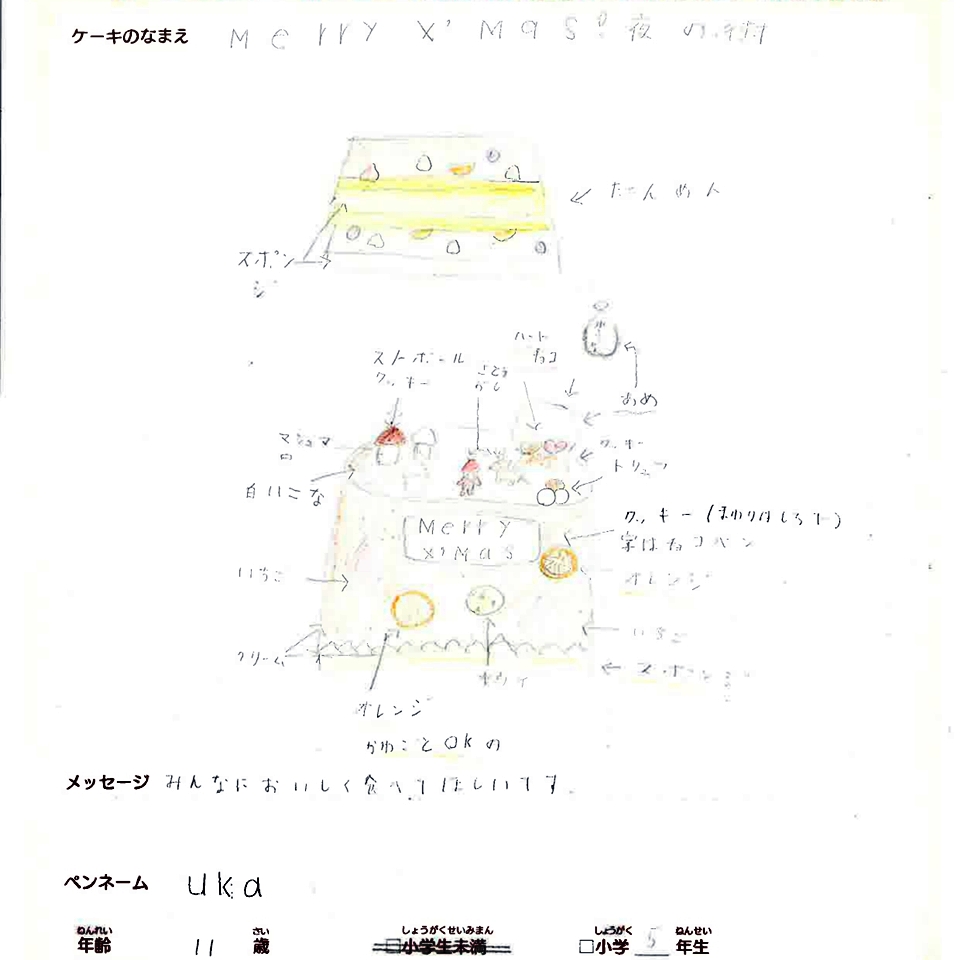 ケーキのなまえ Merry X'Mas! 夜の街
だんめん
スポンジ
ハート
チョコ
スノボール
クッキー
さとう
がし
あめ
マシュマロ
クッキー
トリュフ
白いこな
クッキー(まわりはしろで)
字はチョコペン
Merry
X'Mas
オレンジ
いちご
いちご
クリーム
スポンジ
キウイ
オレンジ
かわごとOKの
メッセージ みんなにおいしく食べてほしいです。
ペンネーム uka
ねんれい さい しょうがくせいみまん しょうがく ねんせい
年齢 11 歳 □小学生未満 □小学 5 年生